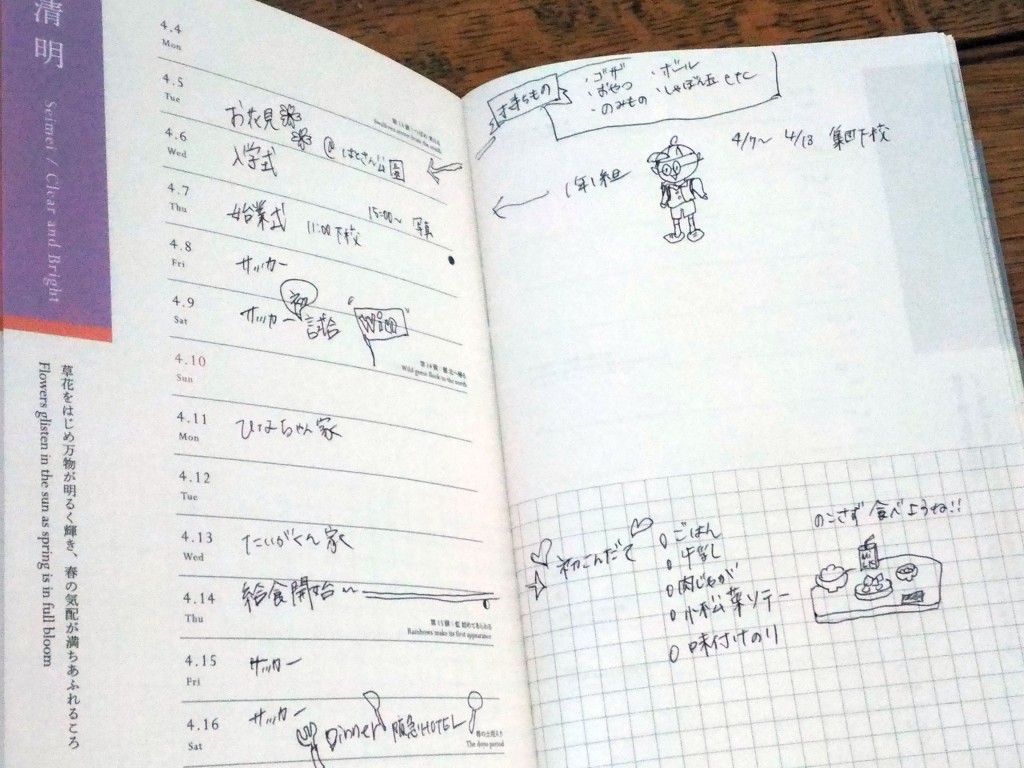 清明
Seimei / Clear and Bright
草花をはじめ万物が明るく輝き、春の気配が満ちあふれるころ
Flowers glisten in the sun as spring is in full bloom
4.4
Mon
4.5
Tue
お花見
@ はとさん公園
4.6
Wed
入学式
4.7
Thu
始業式 11:00下校 15:00〜 写真
4.8
Fri
サッカー
4.9
Sat
サッカー 初試合 "Win"
Wild geese flock to the north
4.10
Sun
4.11
Mon
ひなちゃん家
4.12
Tue
4.13
Wed
たいがくん家
4.14
Thu
給食開始〜
Rainbows make its first appearance
4.15
Fri
サッカー
4.16
Sat
サッカー
Dinner 阪急HOTEL
春の土用入り
The doyo period
持ちもの
・ゴザ ・ボール
・おやつ ・しゃぼん玉 etc
・のみもの
1年1組
4/7〜 4/13 集団下校
初こんだて
ごはん
牛乳
肉じゃが
小松菜ソテー
味付けのり
のこさず食べようね!!